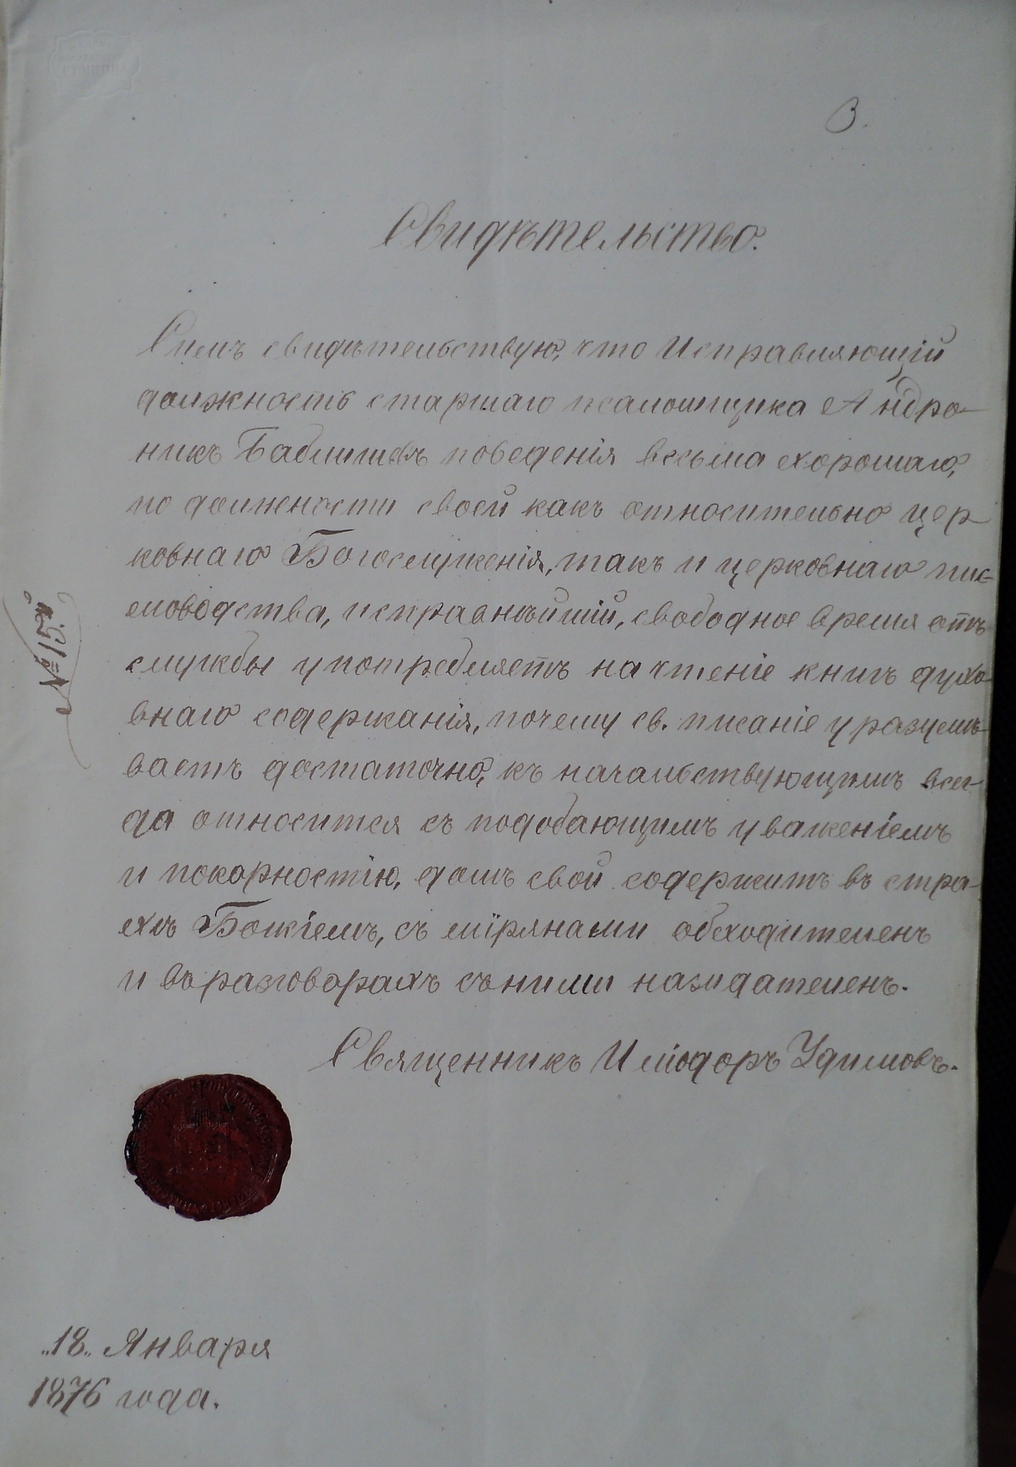 3.
Свидѣтельство.
Симъ свидѣтельствую, что Исправляющій
должность старшаго псаломщика Андро-
никъ поведенія весьма хорошаго,
по должности своей какъ относительно цер-
ковнаго Богослуженія, такъ и церковнаго пис-
моводства, исправнѣйшій, свободное время отъ
службы употребляетъ на чтеніе книгъ духо-
внаго содержанія, почему св. писаніе уразумѣ-
ваетъ достаточно, къ начальствующимъ всег-
да относится съ подобающимъ уваженіемъ
и покорностію, домъ свой содержитъ въ стра-
хѣ Божіемъ, съ мірянами обходителенъ
и въ разговорахъ съ ними назидателенъ.
Священникъ Иліодоръ
№ 15.й
„18„ Января
1876 года.